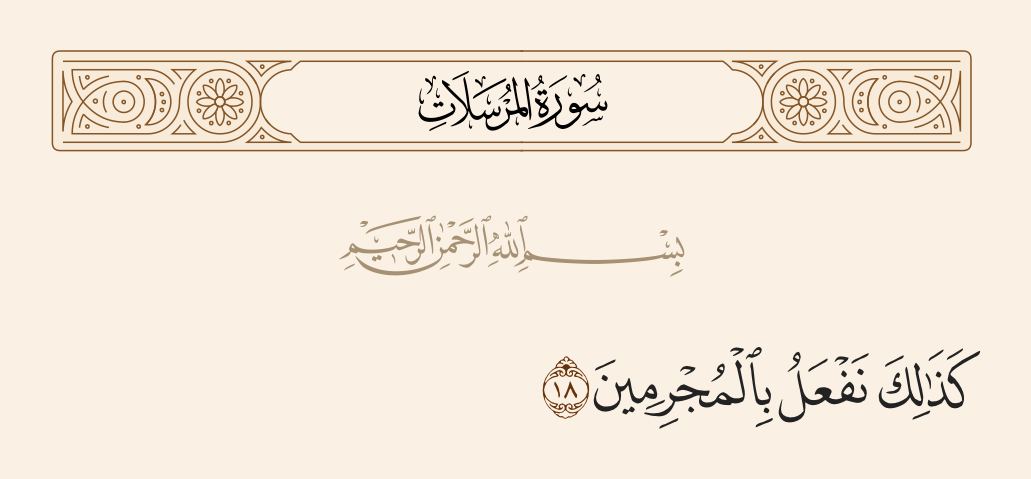 سُورَةُ المُرْسَلَاتِ
بِسْمِ ٱللَّهِ ٱلرَّحْمَٰنِ ٱلرَّحِيمِ
كَذَٰلِكَ نَفْعَلُ بِٱلْمُجْرِمِينَ ١٨